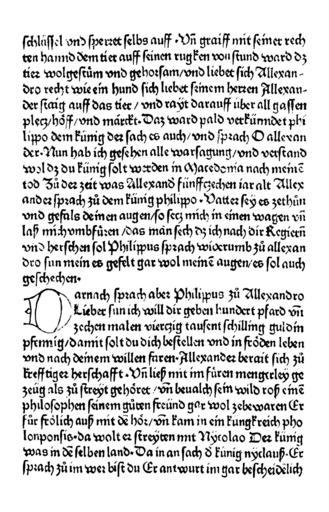 schlüssel vnd sperret selbs auff · Vn̄ graiff mit seiner rech
ten hannd dem tier auff seinen rugken von stund ward dz
tier wolgestüm vnd gehorsam/vnd liebet sich Allexan-
dro recht wie ein hund sich liebet seinem herren Allexan-
der staig auff das tier / vnd rayt darauff über all gassen
plecz/höff/vnd märckt. Daz ward pald verkünndet phi
lippo dem künig der sach es auch/vnd sprach O allexan
der. Nun hab ich gesehen alle warsagung/vnd verstand
wol dz du künig solt werden in Macedonia nach meinē
tod Zů der zeit was Allexand fünffczehen iar alt Allex
ander sprach zů dem künig philippo · Vatter sey es zethůn
vnd gefals deinen augen/so secz mich in einen wagen vn̄
laß mich vmbfüren/das man sech dz ich nach dir Regiern̄
vnd herschen sol Philippus sprach widerumb zů allexan
dro sun mein es gefelt gar wol meinē augen/es sol auch
geschechen.
Darnach sprach aber Philippus zů Allexandro
Lieber sun ich will dir geben hundert pfard vn̄
zechen malen vierczig tausent schilling guldin
pfennig/damit solt du dich bestellen vnd in fröden leben
vnd nach deinem willen faren. Allexander berait sich zů
krefftiger herschafft · Vn̄ ließ mit im füren mengerley ge
zeüg als zů streyt gehöret /vn̄ beualch sein wild roß einē
philosophen seinem gůten freünd gar wol zebewaren Er
für frölich auß mit dē hör/vn̄ kam in ein kungkreich pho
lonponsis · da wolt er streyten mit Nycolao Der künig
was in dē selben land. Da in an sach d́ künig nyclauß. Er
sprach zů im wer bist du Er antwurt im gar bescheidēlich